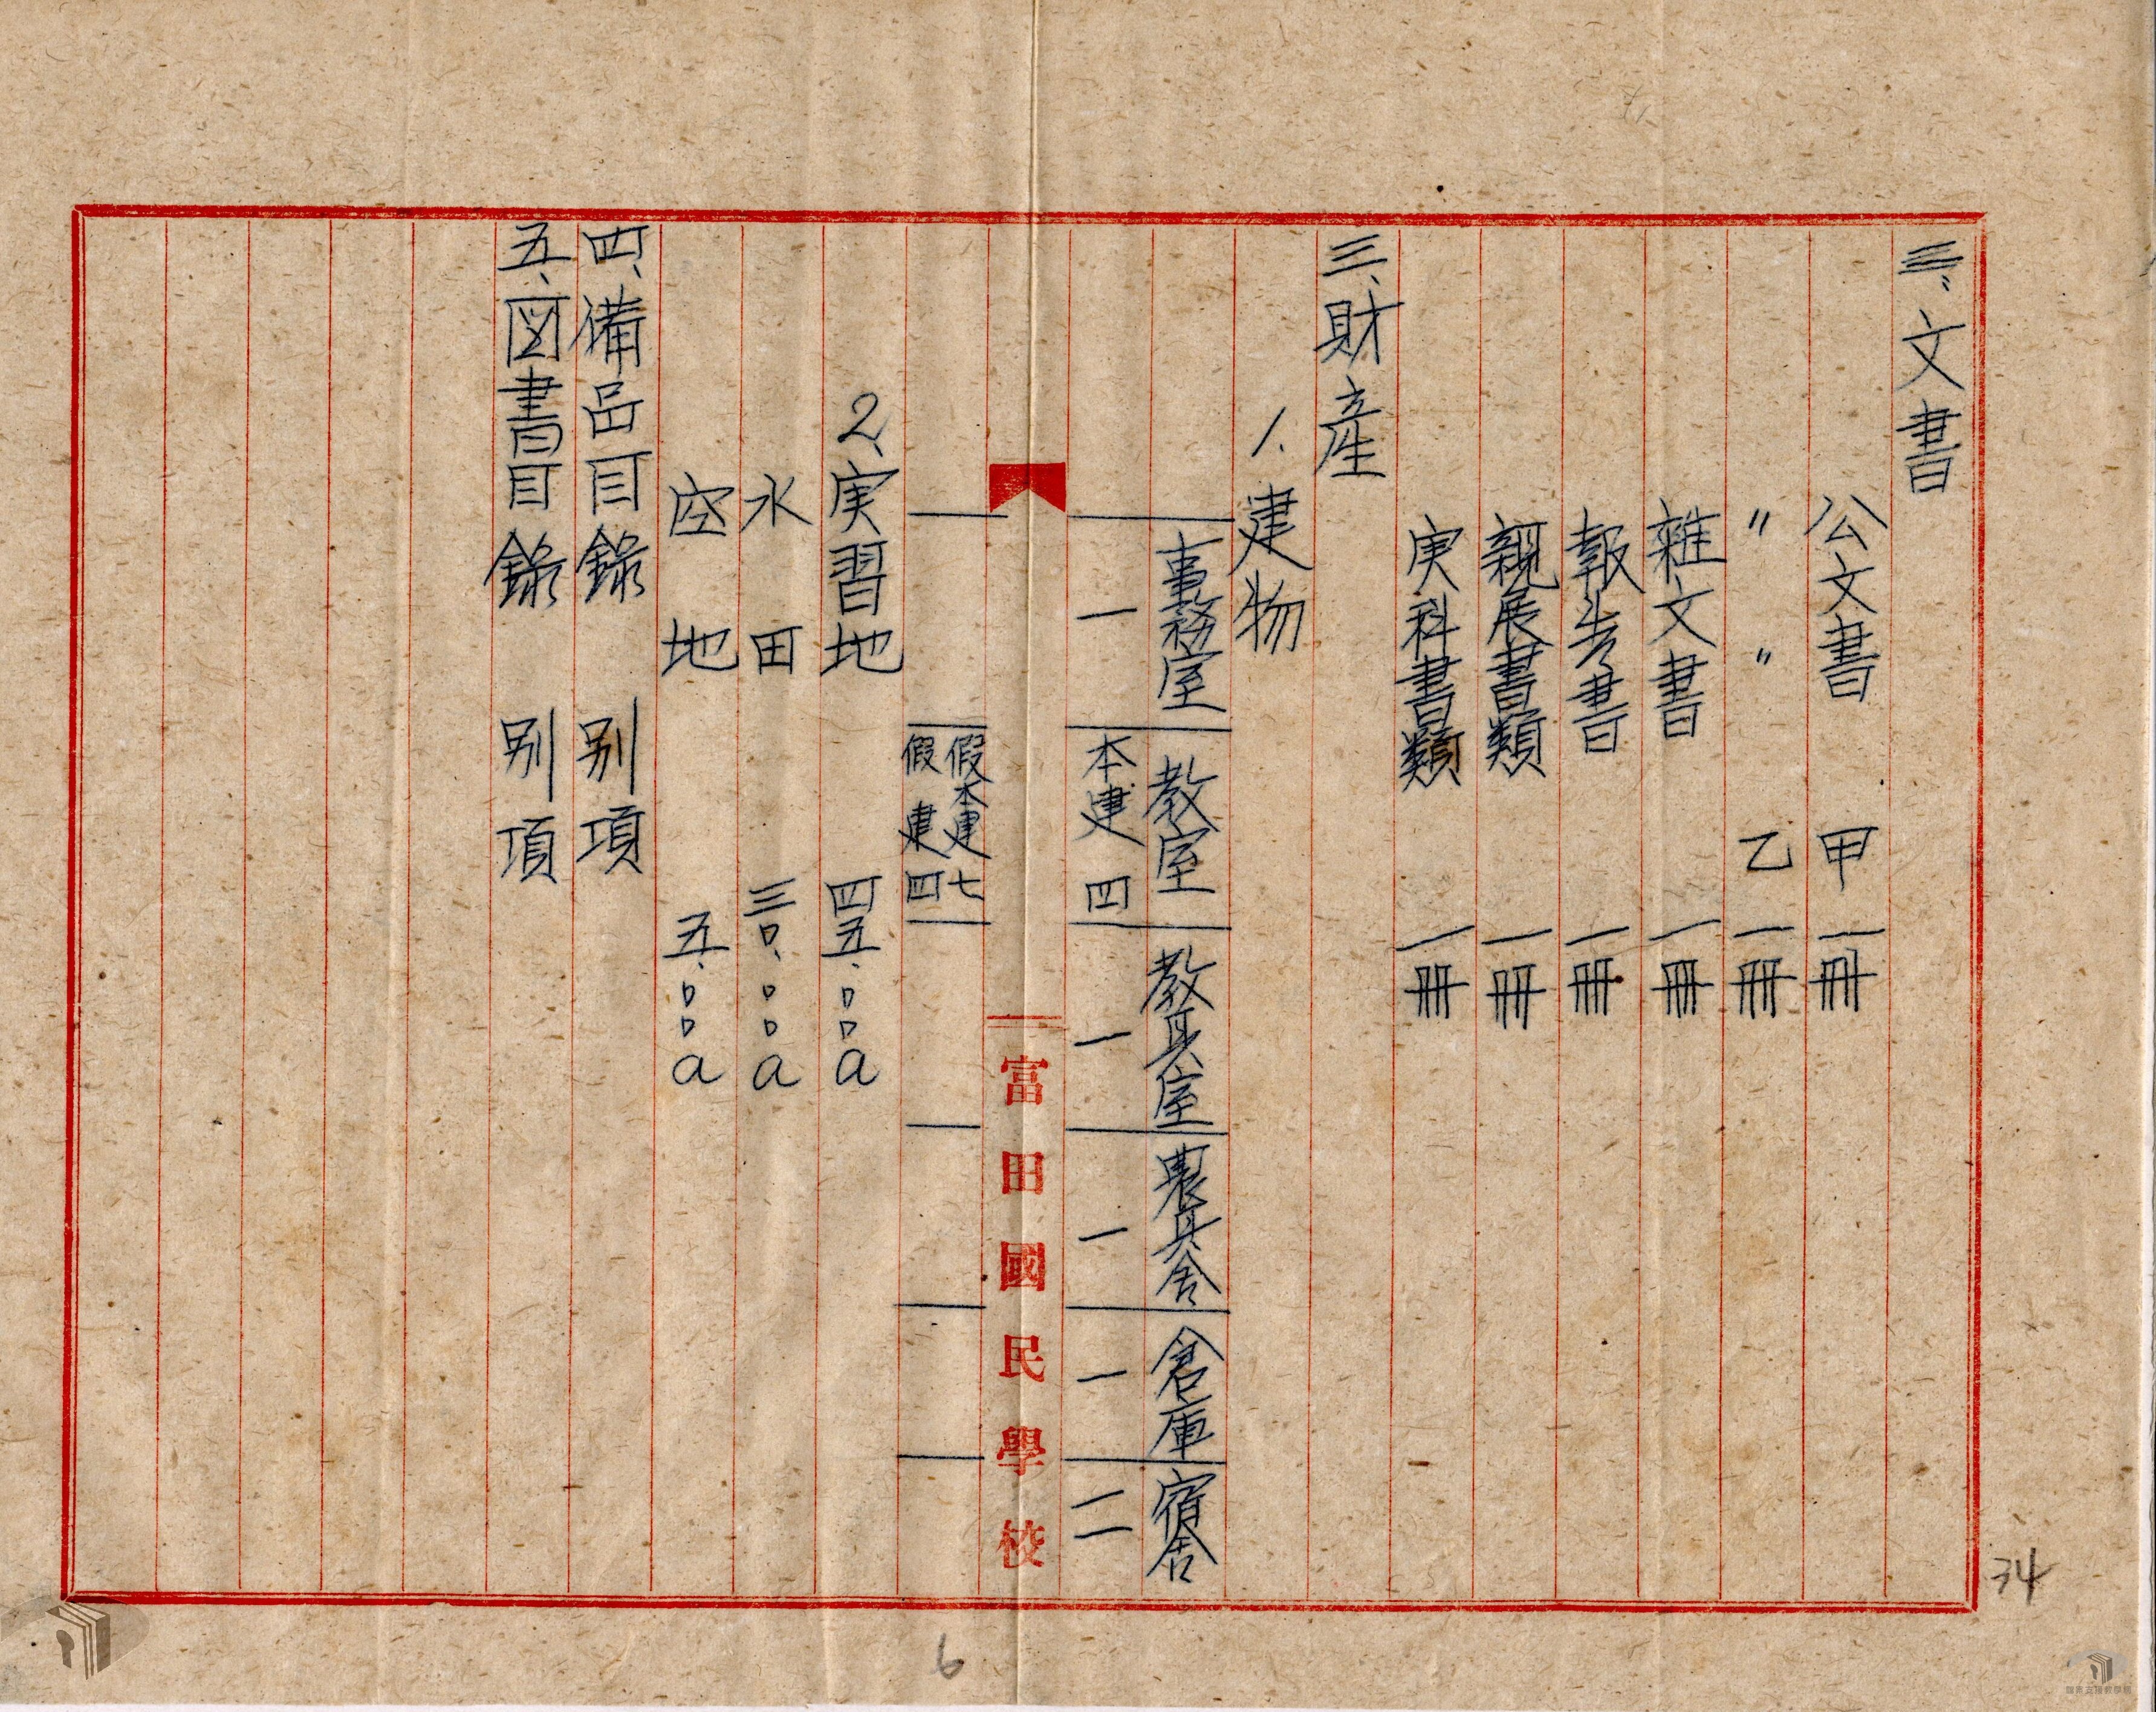 三、文書
公文書 甲 一冊
〃 〃 乙 一冊
雑文書 一冊
報告書 一冊
親展書書類 一冊
実科書書類 一冊
三、財産
1. 建物
事務室 教室 教具室 農具舎 倉庫 宿舎
一 本建四 一 一 一 二
富田國民學校
假本建七
假建四
2、実習地 四五、〇〇a
水田 三〇、〇〇a
空地 五、〇〇a
四、備品目錄 別項
五、図書目錄 別項
34
6